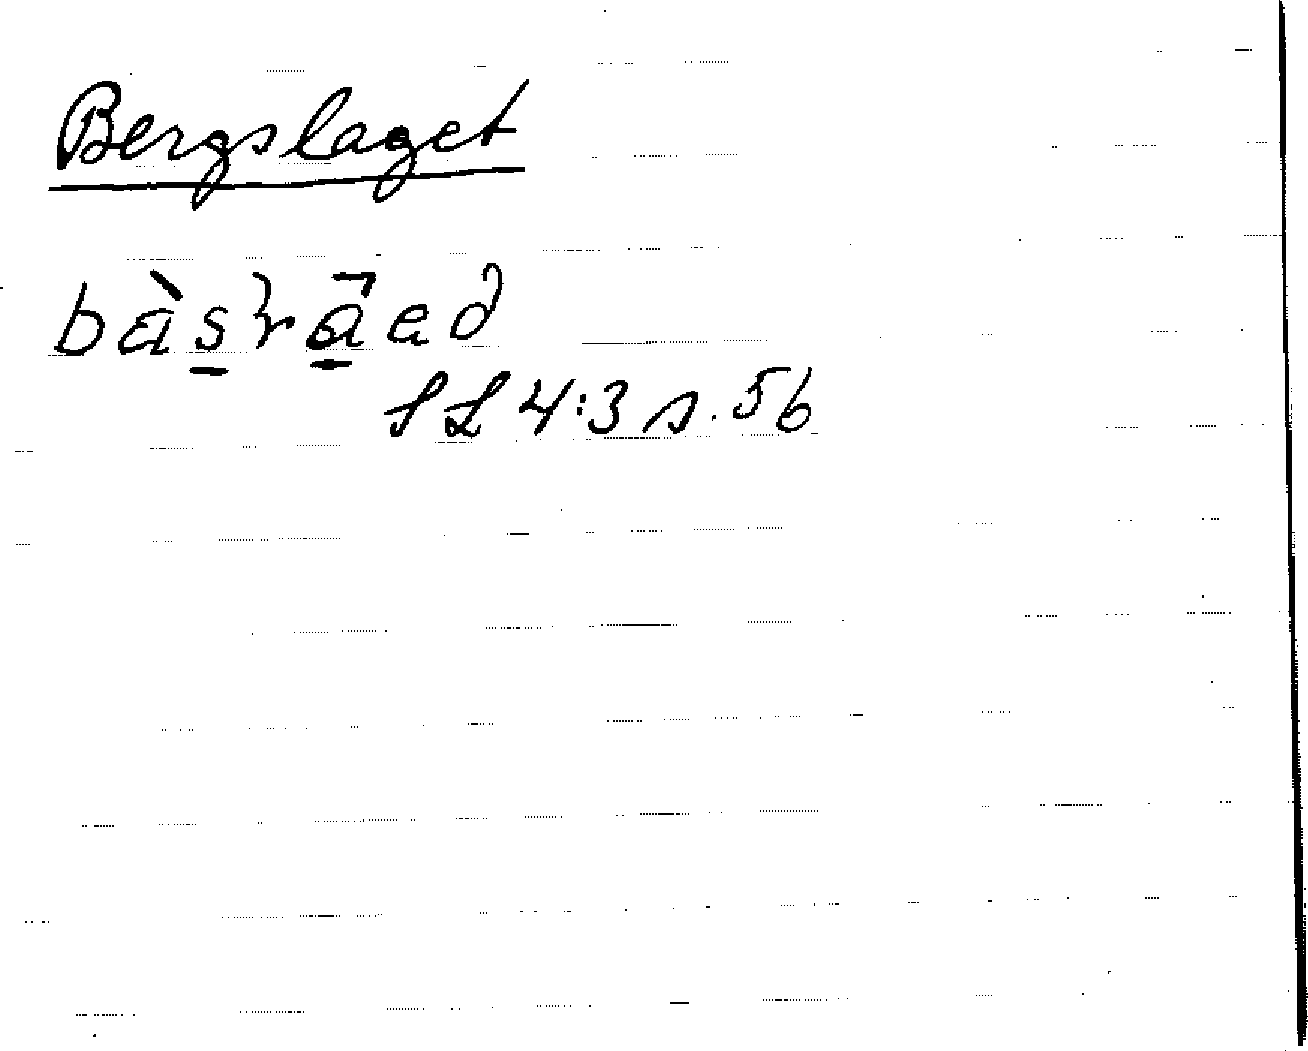 Bergslaget
SL 4:3 s. 56